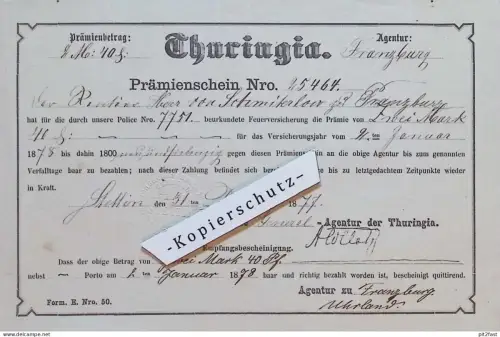 Prämienbetrag: Agentur:
2 M: 40 ₰. Thuringia. Franzburg
Prämienschein Nro. 25464.
Der Rentier Herr von in Franzburg
hat für die durch unsere Police Nro. 7751. beurkundete Feuerversicherung die Prämie von Zwei Mark
40 ₰: für das Versicherungsjahr vom 2.ten Januar
1878 bis dahin 1800 neunundsiebenzig gegen diesen Prämienschein an die obige Agentur bis zum genannten
Verfalltage baar zu bezahlen; nach dieser Zahlung befindet sich bis zu letztgedachtem Zeitpunkte wieder
in Kraft.
Stettin, den 31 1877.
-Kopierschutz-
-Agentur der Thuringia.
Empfangsbescheinigung.
Dass der obige Betrag von Zwei Mark 40 Pf.
nebst — Porto am 2 ten Januar 1878 baar und richtig bezahlt worden ist, bescheinigt quittirend.
Agentur zu Franzburg
Form. E. Nro. 50. Uhrland.